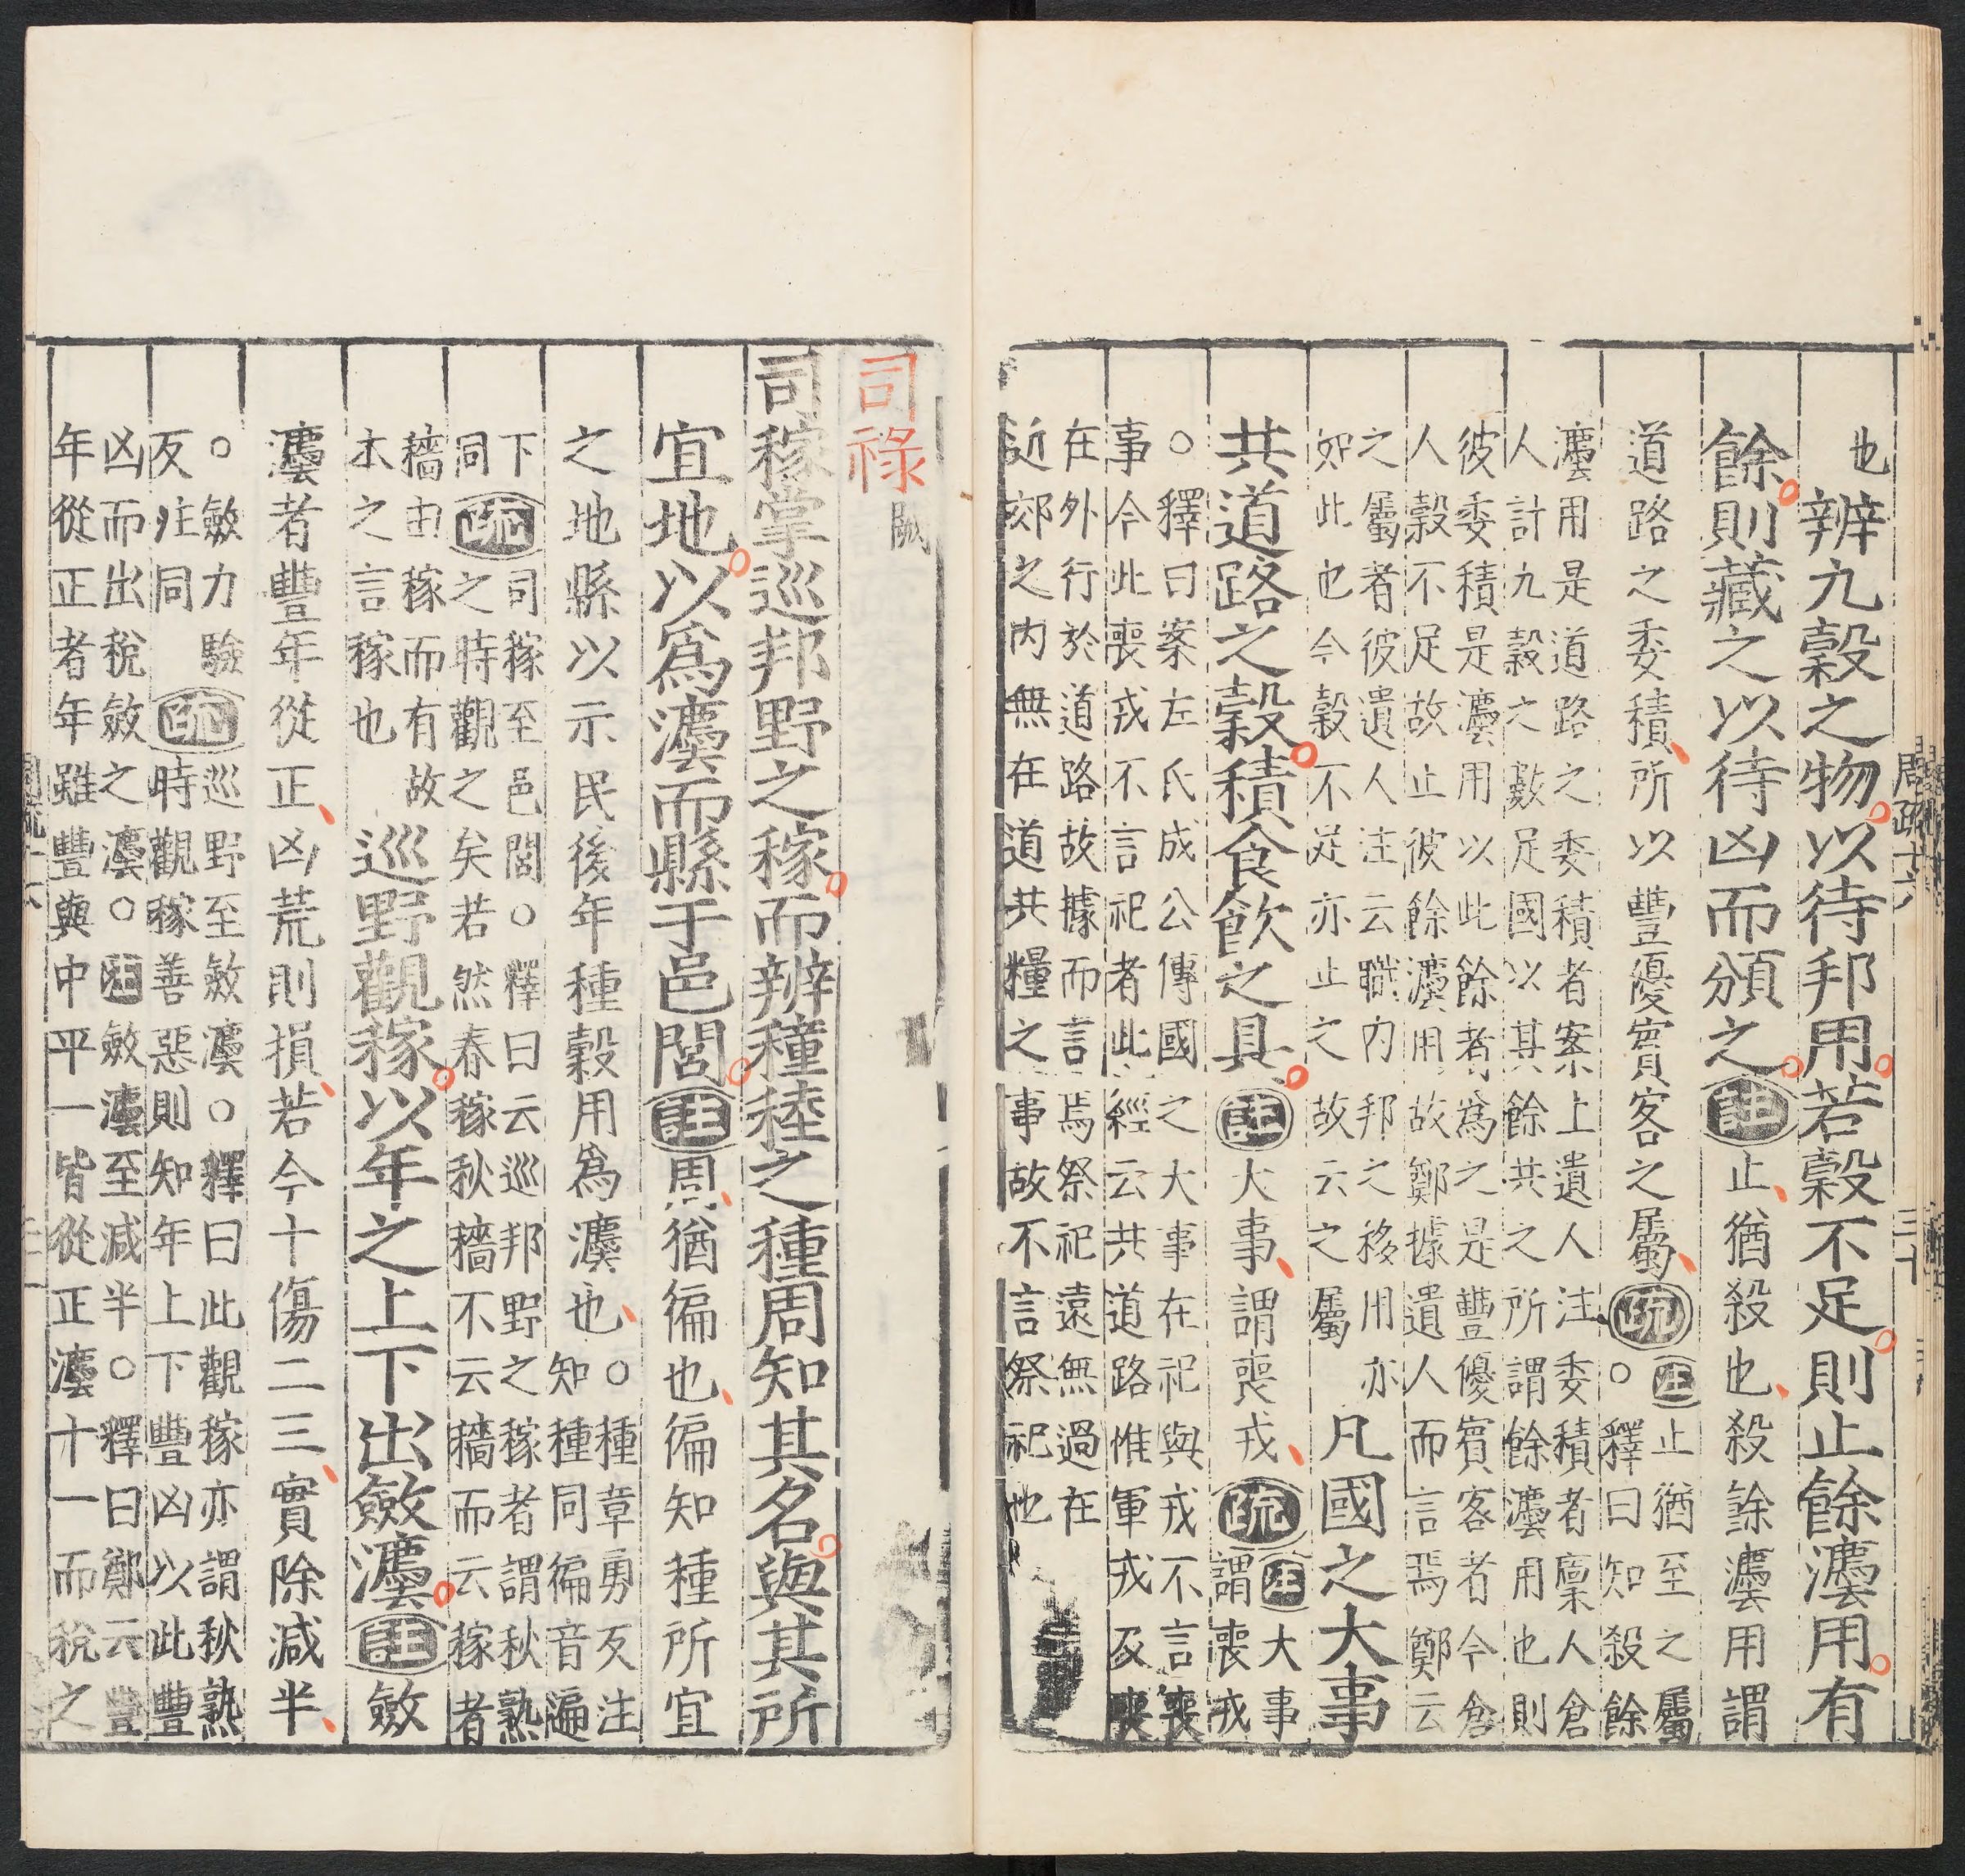 也辨九穀之物以待邦用若穀不足則止餘灋用有
餘則藏之以待凶而頒之註止猶殺也殺餘灋用謂
道路之委積所以豐優賓客之屬疏
註止猶至之屬
○釋曰知殺餘
灋用是道路之委積者案上遺人注委積者廩人倉
人計九穀之數足國以其餘共之所謂餘灋用也則
彼委積是灋用以此餘者爲之是豐優賓客者今倉
人穀不足故止彼餘灋用故鄭據遺人而言焉鄭云
之屬者彼遺人注云職內邦之移用亦
如此也今穀不足亦止之故云之屬
凡國之大事
共道路之穀積食飲之具註大事謂喪戎疏
註大事
謂喪戎
○釋曰案左氏成公傳國之大事在祀與戎不言喪
事今此喪戎不言祀者此經云共道路惟軍戎及喪
在外行於道路故據而言焉祭祀遠無過在
近郊之內無在道共糧之事故不言祭祀也
周疏十六 三十
司祿闕
司稼掌巡邦野之稼而辨穜稑之種周知其名與其所
宜地以爲灋而縣于邑閭註周猶徧也徧知種所宜
之地縣以示民後年種穀用爲灋也
○種章勇反注
知種同徧音遍
下
同
疏
司稼至邑閭○釋曰云巡邦野之稼者謂秋熟
之時觀之矣若然春稼秋穡不云穡而云稼者
穡由稼而有故
木之言稼也
巡野觀稼以年之上下出斂灋註斂
灋者豐年從正凶荒則損若今十傷二三實除減半
○斂力驗
反注同
疏
巡野至斂灋○釋曰此觀稼亦謂秋熟
時觀稼善惡則知年上下豐凶以此豐
凶而出稅斂之灋○註斂灋至減半○釋曰鄭云豐
年從正者年雖豐與中平一皆從正灋十一而稅之